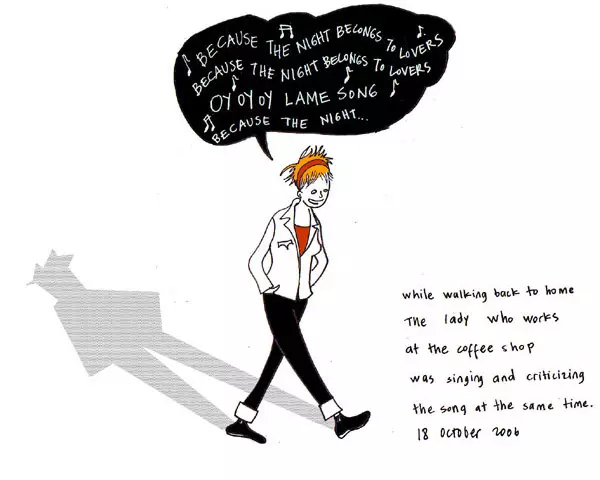 BECAUSE THE NIGHT BELONGS TO LOVERS
BECAUSE THE NIGHT BELONGS TO LOVERS
OY OY OY LAME SONG
BECAUSE THE NIGHT...
while walking back to home
The lady who works
at the coffee shop
was singing and criticizing
the song at the same time.
18 October 2006